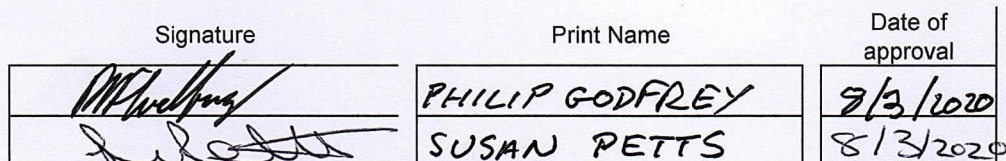 Signature Print Name Date of
approval
PHILIP GODFREY 8/3/2020
SUSAN PETTS 8/3/2020